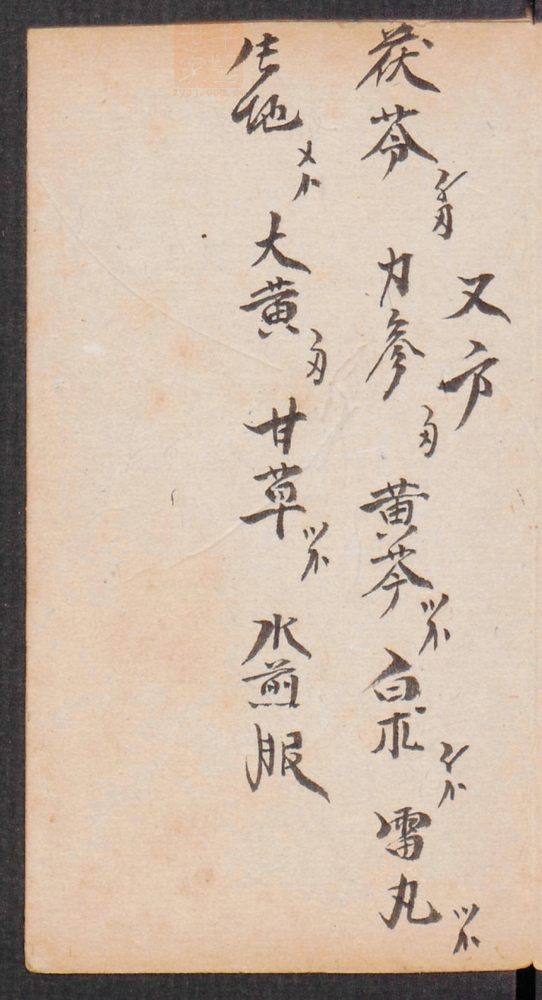 又方
茯苓 力参 黄芩 白朮 雷丸
生地 大黄 甘草 水煎服